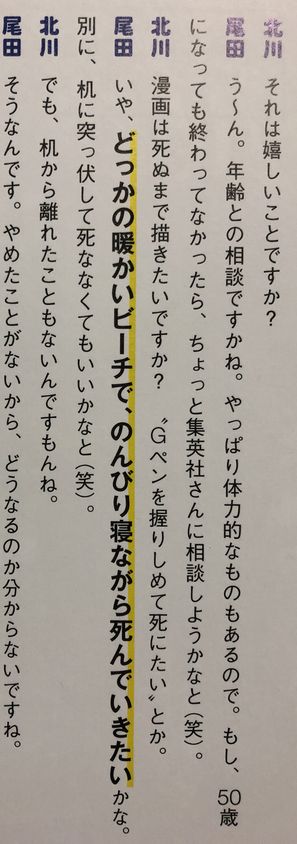 北川 それは嬉しいことですか?
尾田 う〜ん。年齢との相談ですかね。やっぱり体力的なものもあるので。もし、50歳
になっても終わってなかったら、ちょっと集英社さんに相談しようかなと(笑)。
北川 漫画は死ぬまで描きたいですか? 〝Gペンを握りしめて死にたい〟とか。
尾田 いや、どっかの暖かいビーチで、のんびり寝ながら死んでいきたいかな。
別に、机に突っ伏して死ななくてもいいかなと(笑)。
北川 でも、机から離れたこともないんですもんね。
尾田 そうなんです。やめたことがないから、どうなるのか分からないですね。